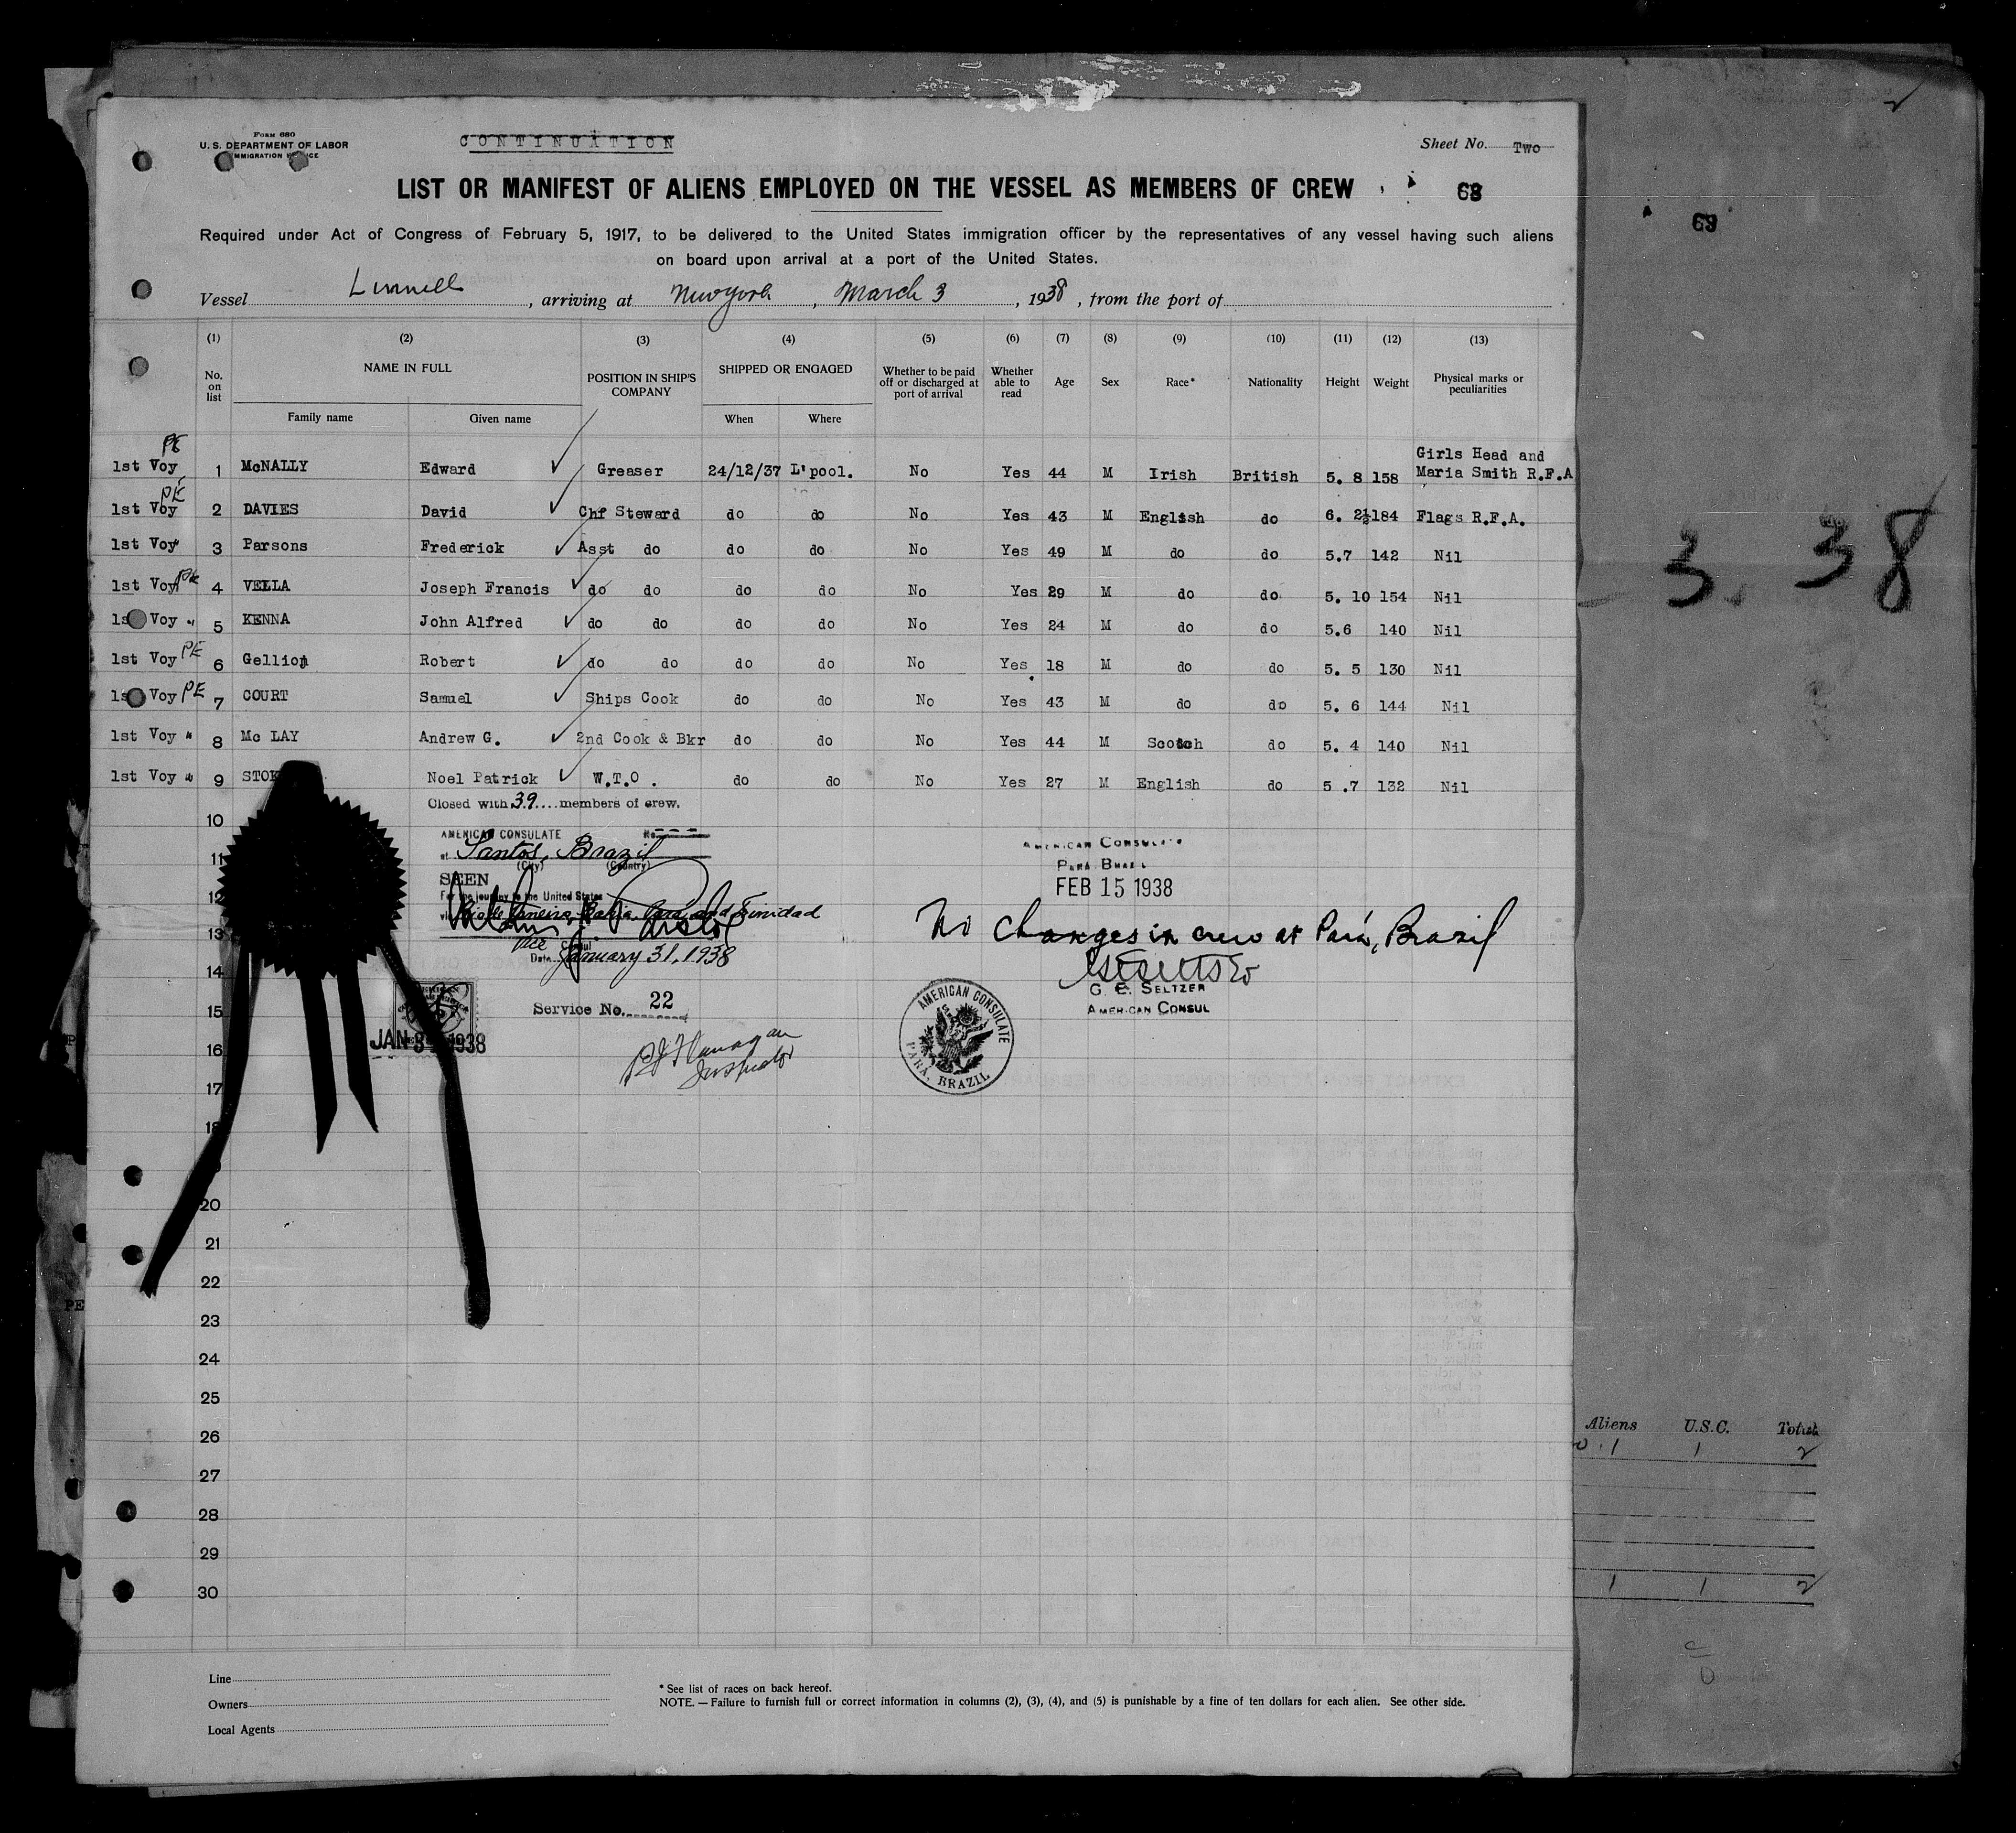 Form 680
U. S. DEPARTMENT OF LABOR
IMMIGRATION
CONTINUATION
Sheet No. Two
LIST OR MANIFEST OF ALIENS EMPLOYED ON THE VESSEL AS MEMBERS OF CREW
68
69
Required under Act of Congress of February 5, 1917, to be delivered to the United States immigration officer by the representatives of any vessel having such aliens
on board upon arrival at a port of the United States.
Vessel Linnell, arriving at New York, March 3, 1938, from the port of
(1) (2) (3) (4) (5) (6) (7) (8) (9) (10) (11) (12) (13)
No. on list NAME IN FULL Family name Given name POSITION IN SHIP'S COMPANY SHIPPED OR ENGAGED When Where Whether to be paid off or discharged at port of arrival Whether able to read Age Sex Race* Nationality Height Weight Physical marks or peculiarities
1st Voy PE 1 McNALLY Edward Greaser 24/12/37 L'pool. No Yes 44 M Irish British 5. 8 158 Girls Head and Maria Smith R.F.A
1st Voy PE 2 DAVIES David Chf Steward do do No Yes 43 M English do 6. 2½ 184 Flags R.F.A.
1st Voy " 3 Parsons Frederick Asst do do do No Yes 49 M do do 5.7 142 Nil
1st Voy PE 4 VELLA Joseph Francis do do do do No Yes 29 M do do 5. 10 154 Nil
1st Voy " 5 KENNA John Alfred do do do do No Yes 24 M do do 5.6 140 Nil
1st Voy PE 6 Gellion Robert do do do do No Yes 18 M do do 5. 5 130 Nil
1st Voy PE 7 COURT Samuel Ships Cook do do No Yes 43 M do do 5. 6 144 Nil
1st Voy " 8 Mc LAY Andrew G. 2nd Cook & Bkr do do No Yes 44 M Scotch do 5. 4 140 Nil
1st Voy " 9 Noel Patrick W.T.O. do do No Yes 27 M English do 5 .7 132 Nil
Closed with 39 members of crew.
10
11
12
13
14
15
16
17
18
20
21
22
23
24
25
26
27
28
29
30
AMERICAN CONSULATE No.
at Santos, Brazil
(City) (Country)
SEEN
For the journey to the United States
via Rio de Janeiro, Bahia, Para, and Trinidad
Vice Consul
Date January 31, 1938
Service No. 22
JAN 31 1938
P J Flanagan
Inspector
AMERICAN CONSULATE
PARA BRAZIL
FEB 15 1938
No changes in crew at Pará, Brazil
G. E. SELTZER
AMERICAN CONSUL
AMERICAN CONSULATE
PARÁ, BRAZIL
3. 38
Aliens U.S.C. Total
1 1 2
1 1 2
PE
Line
Owners
Local Agents
* See list of races on back hereof.
NOTE.—Failure to furnish full or correct information in columns (2), (3), (4), and (5) is punishable by a fine of ten dollars for each alien. See other side.